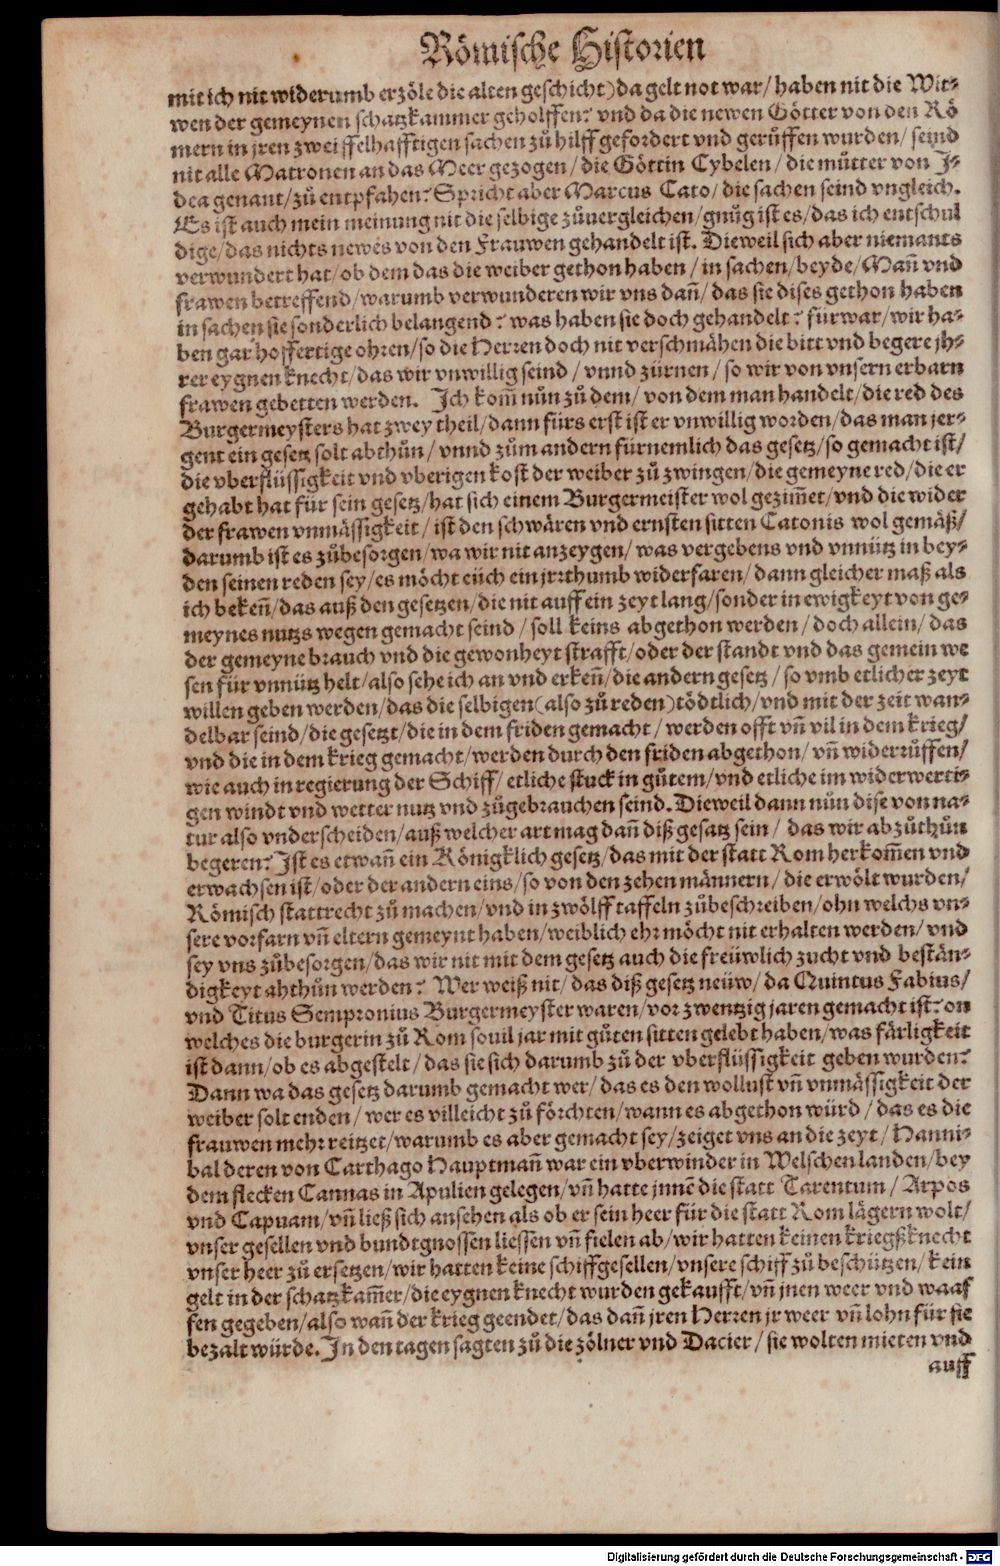 Römische Historien
mit ich nit widerumb erzöle die alten geschicht) da gelt not war/ haben nit die Wit⸗
wen der gemeynen schatzkammer geholffen? vnd da die newen Götter von den Rö
mern in jren zweiffelhafftigen sachen zů hilff gefordert vnd gerůffen wurden/ seind
nit alle Matronen an das Meer gezogen/ die Göttin Cybelen/ die můtter von J⸗
dea genant/ zů entpfahen? Spricht aber Marcus Cato/ die sachen seind vngleich.
Es ist auch mein meinung nit die selbige zůuergleichen/ gnůg ist es/ das ich entschul
dige/ das nichts newes von den Frauwen gehandelt ist. Dieweil sich aber niemants
verwundert hat/ ob dem das die weiber gethon haben/ in sachen/ beyde/ Mañ vnd
frawen betreffend/ warumb verwunderen wir vns dañ/ das sie dises gethon haben
in sachen sie sonderlich belangend? was haben sie doch gehandelt? fürwar/ wir ha⸗
ben gar hoffertige ohren/ so die Herren doch nit verschmähen die bitt vnd begere jh⸗
rer eygnen knecht/ das wir vnwillig seind/ vnnd zürnen/ so wir von vnsern erbarn
frawen gebetten werden. Ich kom̃ nůn zů dem/ von dem man handelt/ die red des
Burgermeysters hat zwey theil/ dann fürs erst ist er vnwillig worden/ das man jer⸗
gent ein gesetz solt abthůn/ vnnd zům andern fürnemlich das gesetz/ so gemacht ist/
die vberflüssigkeit vnd vberigen kost der weiber zů zwingen/ die gemeyne red/ die er
gehabt hat für sein gesetz/ hat sich einem Burgermeister wol gezim̃et/ vnd die wider
der frawen vnmässigkeit/ ist den schwären vnd ernsten sitten Catonis wol gemäß/
darumb ist es zůbesorgen/ wa wir nit anzeygen/ was vergebens vnd vnnütz in bey⸗
den seinen reden sey/ es möcht eüch ein jrrthumb widerfaren/ dann gleicher maß als
ich bekeñ/ das auß den gesetzen/ die nit auff ein zeyt lang/ sonder in ewigkeyt von ge⸗
meynes nutzs wegen gemacht seind/ soll keins abgethon werden/ doch allein/ das
der gemeyne brauch vnd die gewonheyt strafft/ oder der standt vnd das gemein we
sen für vnnütz helt/ also sehe ich an vnd erkeñ/ die andern gesetz/ so vmb etlicher zeyt
willen geben werden/ das die selbigen (also zů reden) tödtlich/ vnd mit der zeit wan⸗
delbar seind/ die gesetzt/ die in dem friden gemacht/ werden offt vñ vil in dem krieg/
vnd die in dem krieg gemacht/ werden durch den friden abgethon/ vñ widerrůffen/
wie auch in regierung der Schiff/ etliche stuck in gůtem/ vnd etliche im widerwerti⸗
gen windt vnd wetter nutz vnd zůgebrauchen seind. Dieweil dann nůn dise von na⸗
tur also vnderscheiden/ auß welcher art mag dañ diß gesatz sein/ das wir abzůthůn
begeren? Ist es etwañ ein Königklich gesetz/ das mit der statt Rom herkom̃en vnd
erwachsen ist/ oder der andern eins/ so von den zehen männern/ die erwölt wurden/
Römisch stattrecht zů machen/ vnd in zwölff taffeln zůbeschreiben/ ohn welchs vn⸗
sere vorfarn vñ eltern gemeynt haben/ weiblich ehr möcht nit erhalten werden/ vnd
sey vns zůbesorgen/ das wir nit mit dem gesetz auch die freüwlich zucht vnd bestän⸗
digkeyt ahthůn werden? Wer weiß nit/ das diß gesetz neüw/ da Quintus Fabius/
vnd Titus Sempronius Burgermeyster waren/ vor zwentzig jaren gemacht ist? on
welches die burgerin zů Rom souil jar mit gůten sitten gelebt haben/ was färligkeit
ist dann/ ob es abgestelt/ das sie sich darumb zů der vberflüssigkeit geben wurden?
Dann wa das gesetz darumb gemacht wer/ das es den wollust vñ vnmässigkeit der
weiber solt enden/ wer es villeicht zů förchten/ wann es abgethon würd/ das es die
frauwen mehr reitzet/ warumb es aber gemacht sey/ zeiget vns an die zeyt/ Hanni⸗
bal deren von Carthago Hauptmañ war ein vberwinder in Welschen landen/ bey
dem flecken Cannas in Apulien gelegen/ vñ hatte jnnẽ die statt Tarentum/ Arpos
vnd Capuam/ vñ ließ sich ansehen als ob er sein heer für die statt Rom lägern wolt/
vnser gesellen vnd bundtgnossen liessen vñ fielen ab/ wir hatten keinen kriegßknecht
vnser heer zů ersetzen/ wir hatten keine schiffgesellen/ vnsere schiff zů beschützen/ kein
gelt in der schatzkam̃er/ die eygnen knecht wurden gekaufft/ vñ jnen weer vnd waaf
fen gegeben/ also wañ der krieg geendet/ das dañ jren Herren jr weer vñ lohn für sie
bezalt würde. In den tagen sagten zů die zölner vnd Dacier/ sie wolten mieten vnd
auff
Digitalisierung gefördert durch die Deutsche Forschungsgemeinschaft - DFG